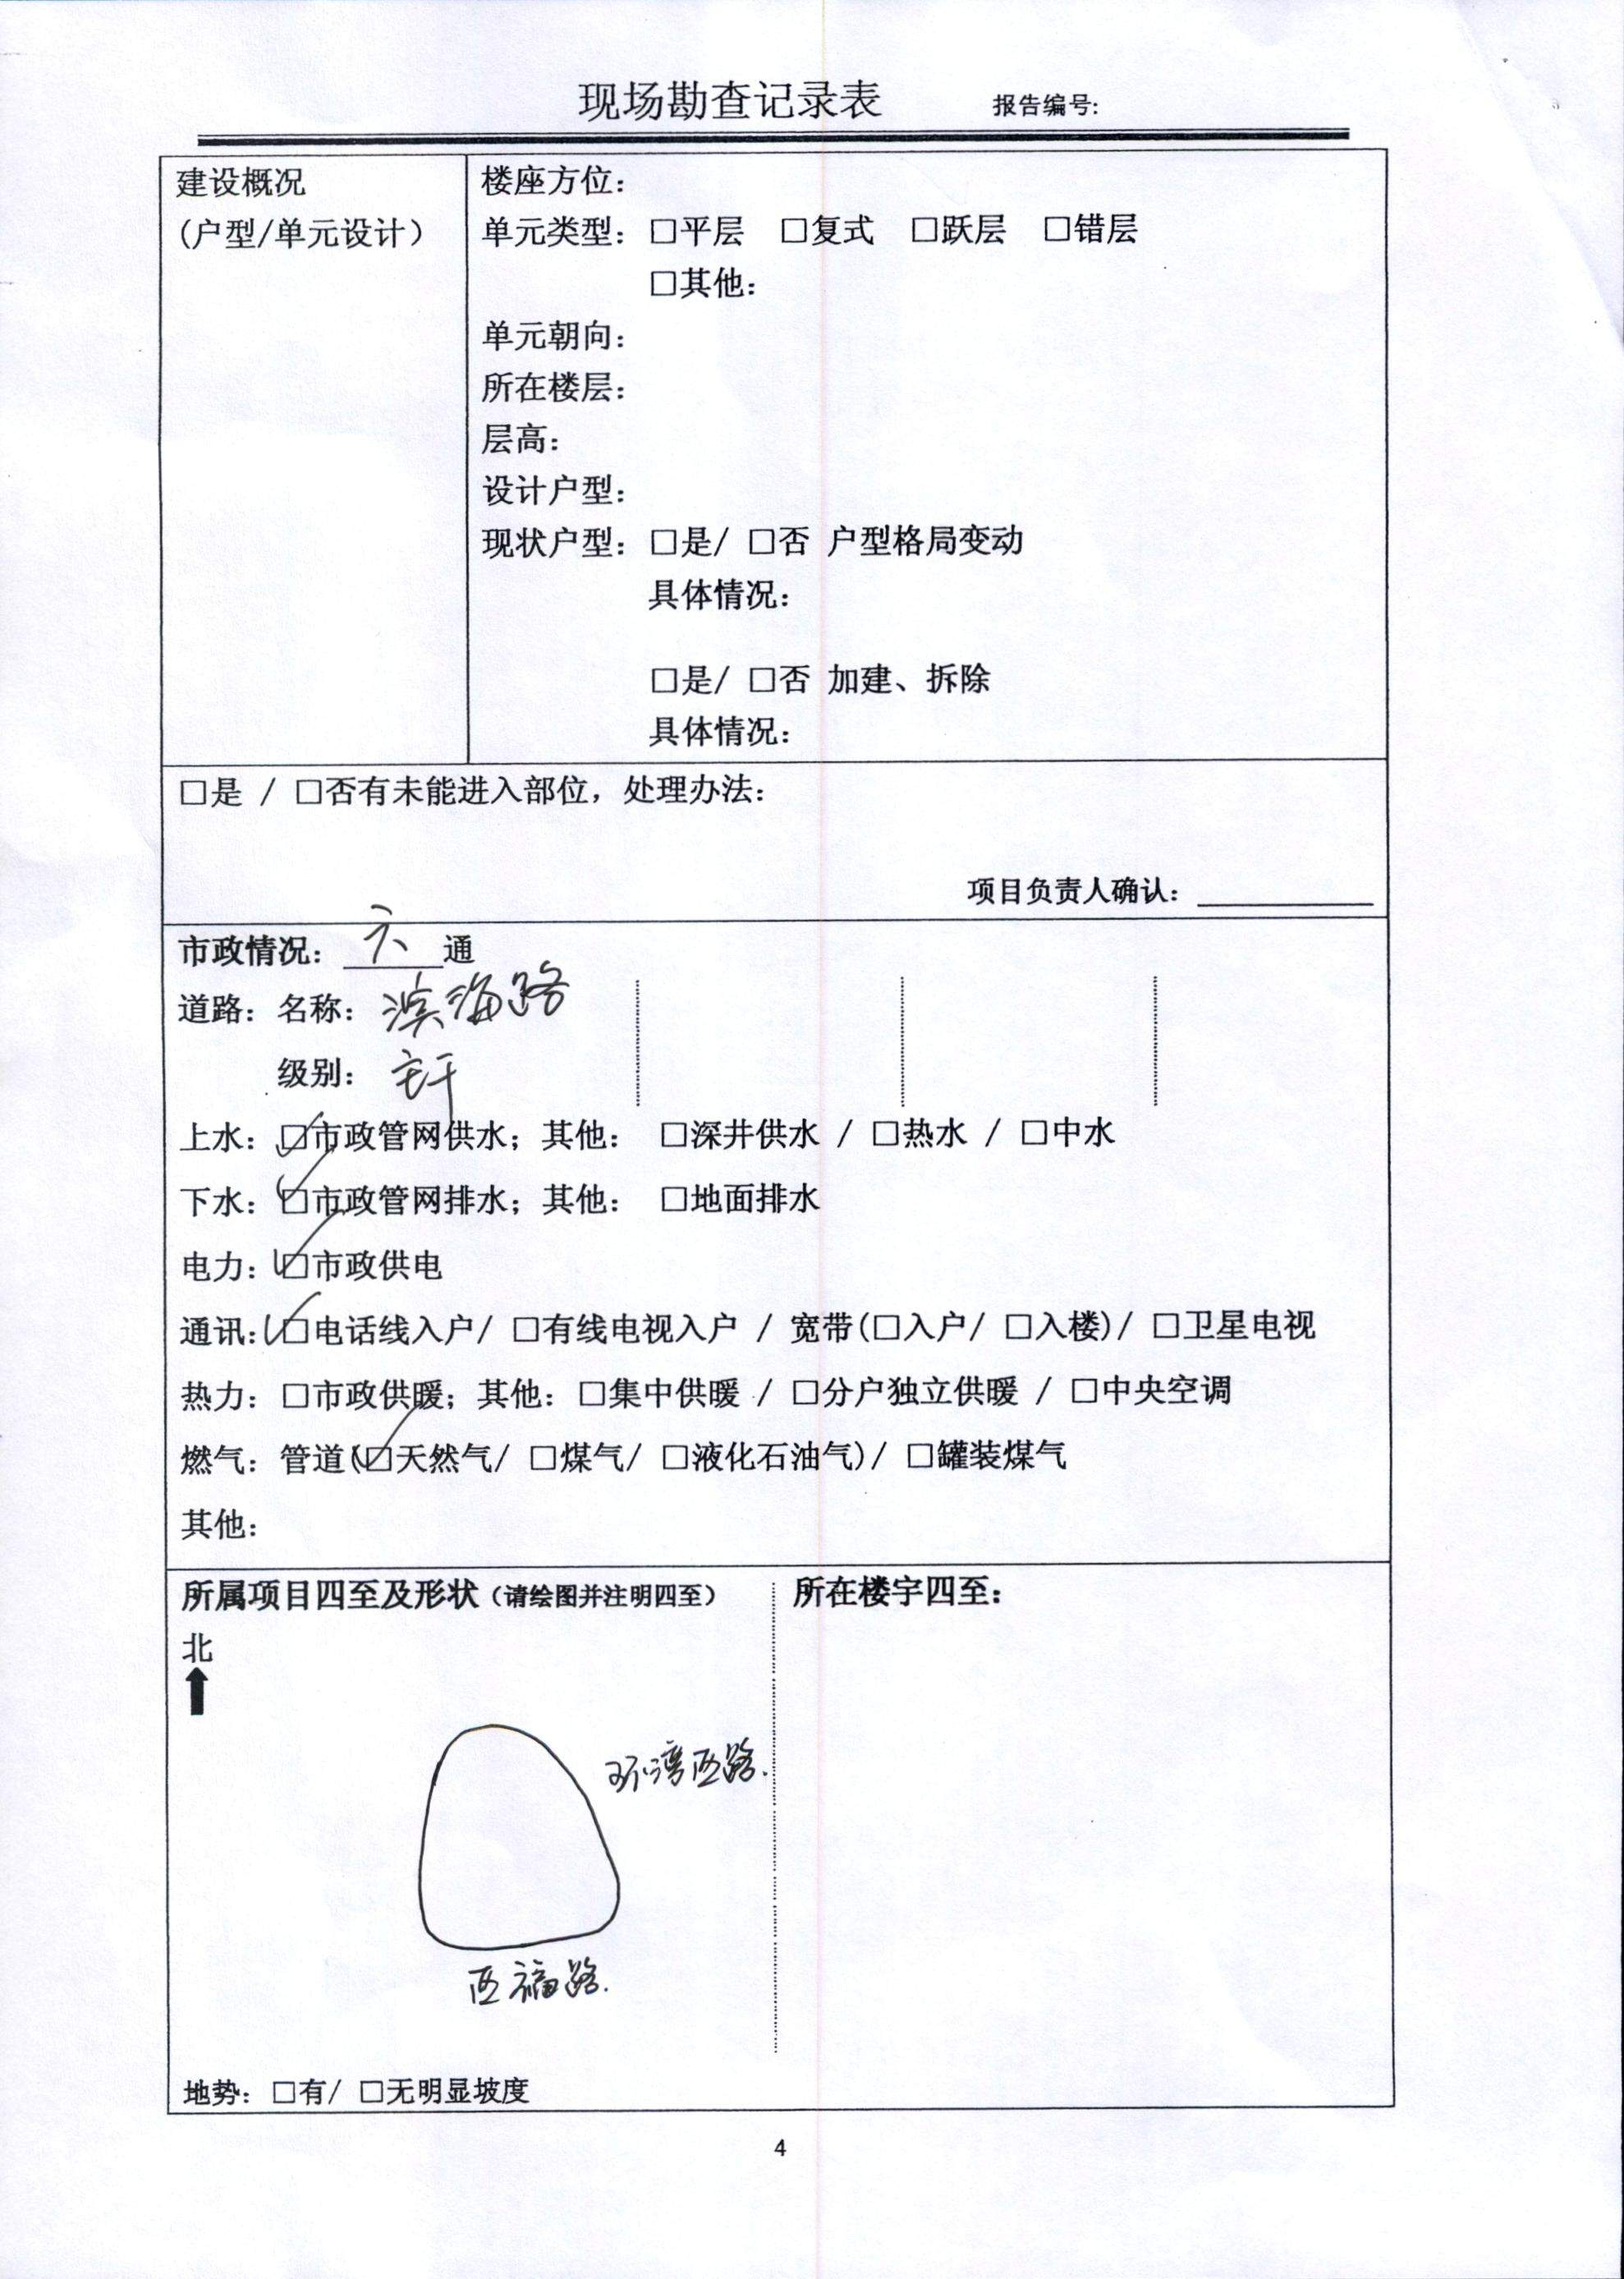 现场勘查记录表 报告编号:
建设概况
(户型/单元设计)
楼座方位:
单元类型: □平层 □复式 □跃层 □错层
□其他:
单元朝向:
所在楼层:
层高:
设计户型:
现状户型: □是/ □否 户型格局变动
具体情况:
□是/ □否 加建、拆除
具体情况:
□是 / □否有未能进入部位, 处理办法:
项目负责人确认:
市政情况: 六 通
道路: 名称: 滨海路
级别: 主干
上水: ☑市政管网供水; 其他: □深井供水 / □热水 / □中水
下水: ☑市政管网排水; 其他: □地面排水
电力: ☑市政供电
通讯: ☑电话线入户/ □有线电视入户 / 宽带(□入户/ □入楼)/ □卫星电视
热力: □市政供暖; 其他: □集中供暖 / □分户独立供暖 / □中央空调
燃气: 管道(☑天然气/ □煤气/ □液化石油气)/ □罐装煤气
其他:
所属项目四至及形状(请绘图并注明四至)
北
环湾西路.
西福路.
地势: □有/ □无明显坡度
所在楼宇四至:
4